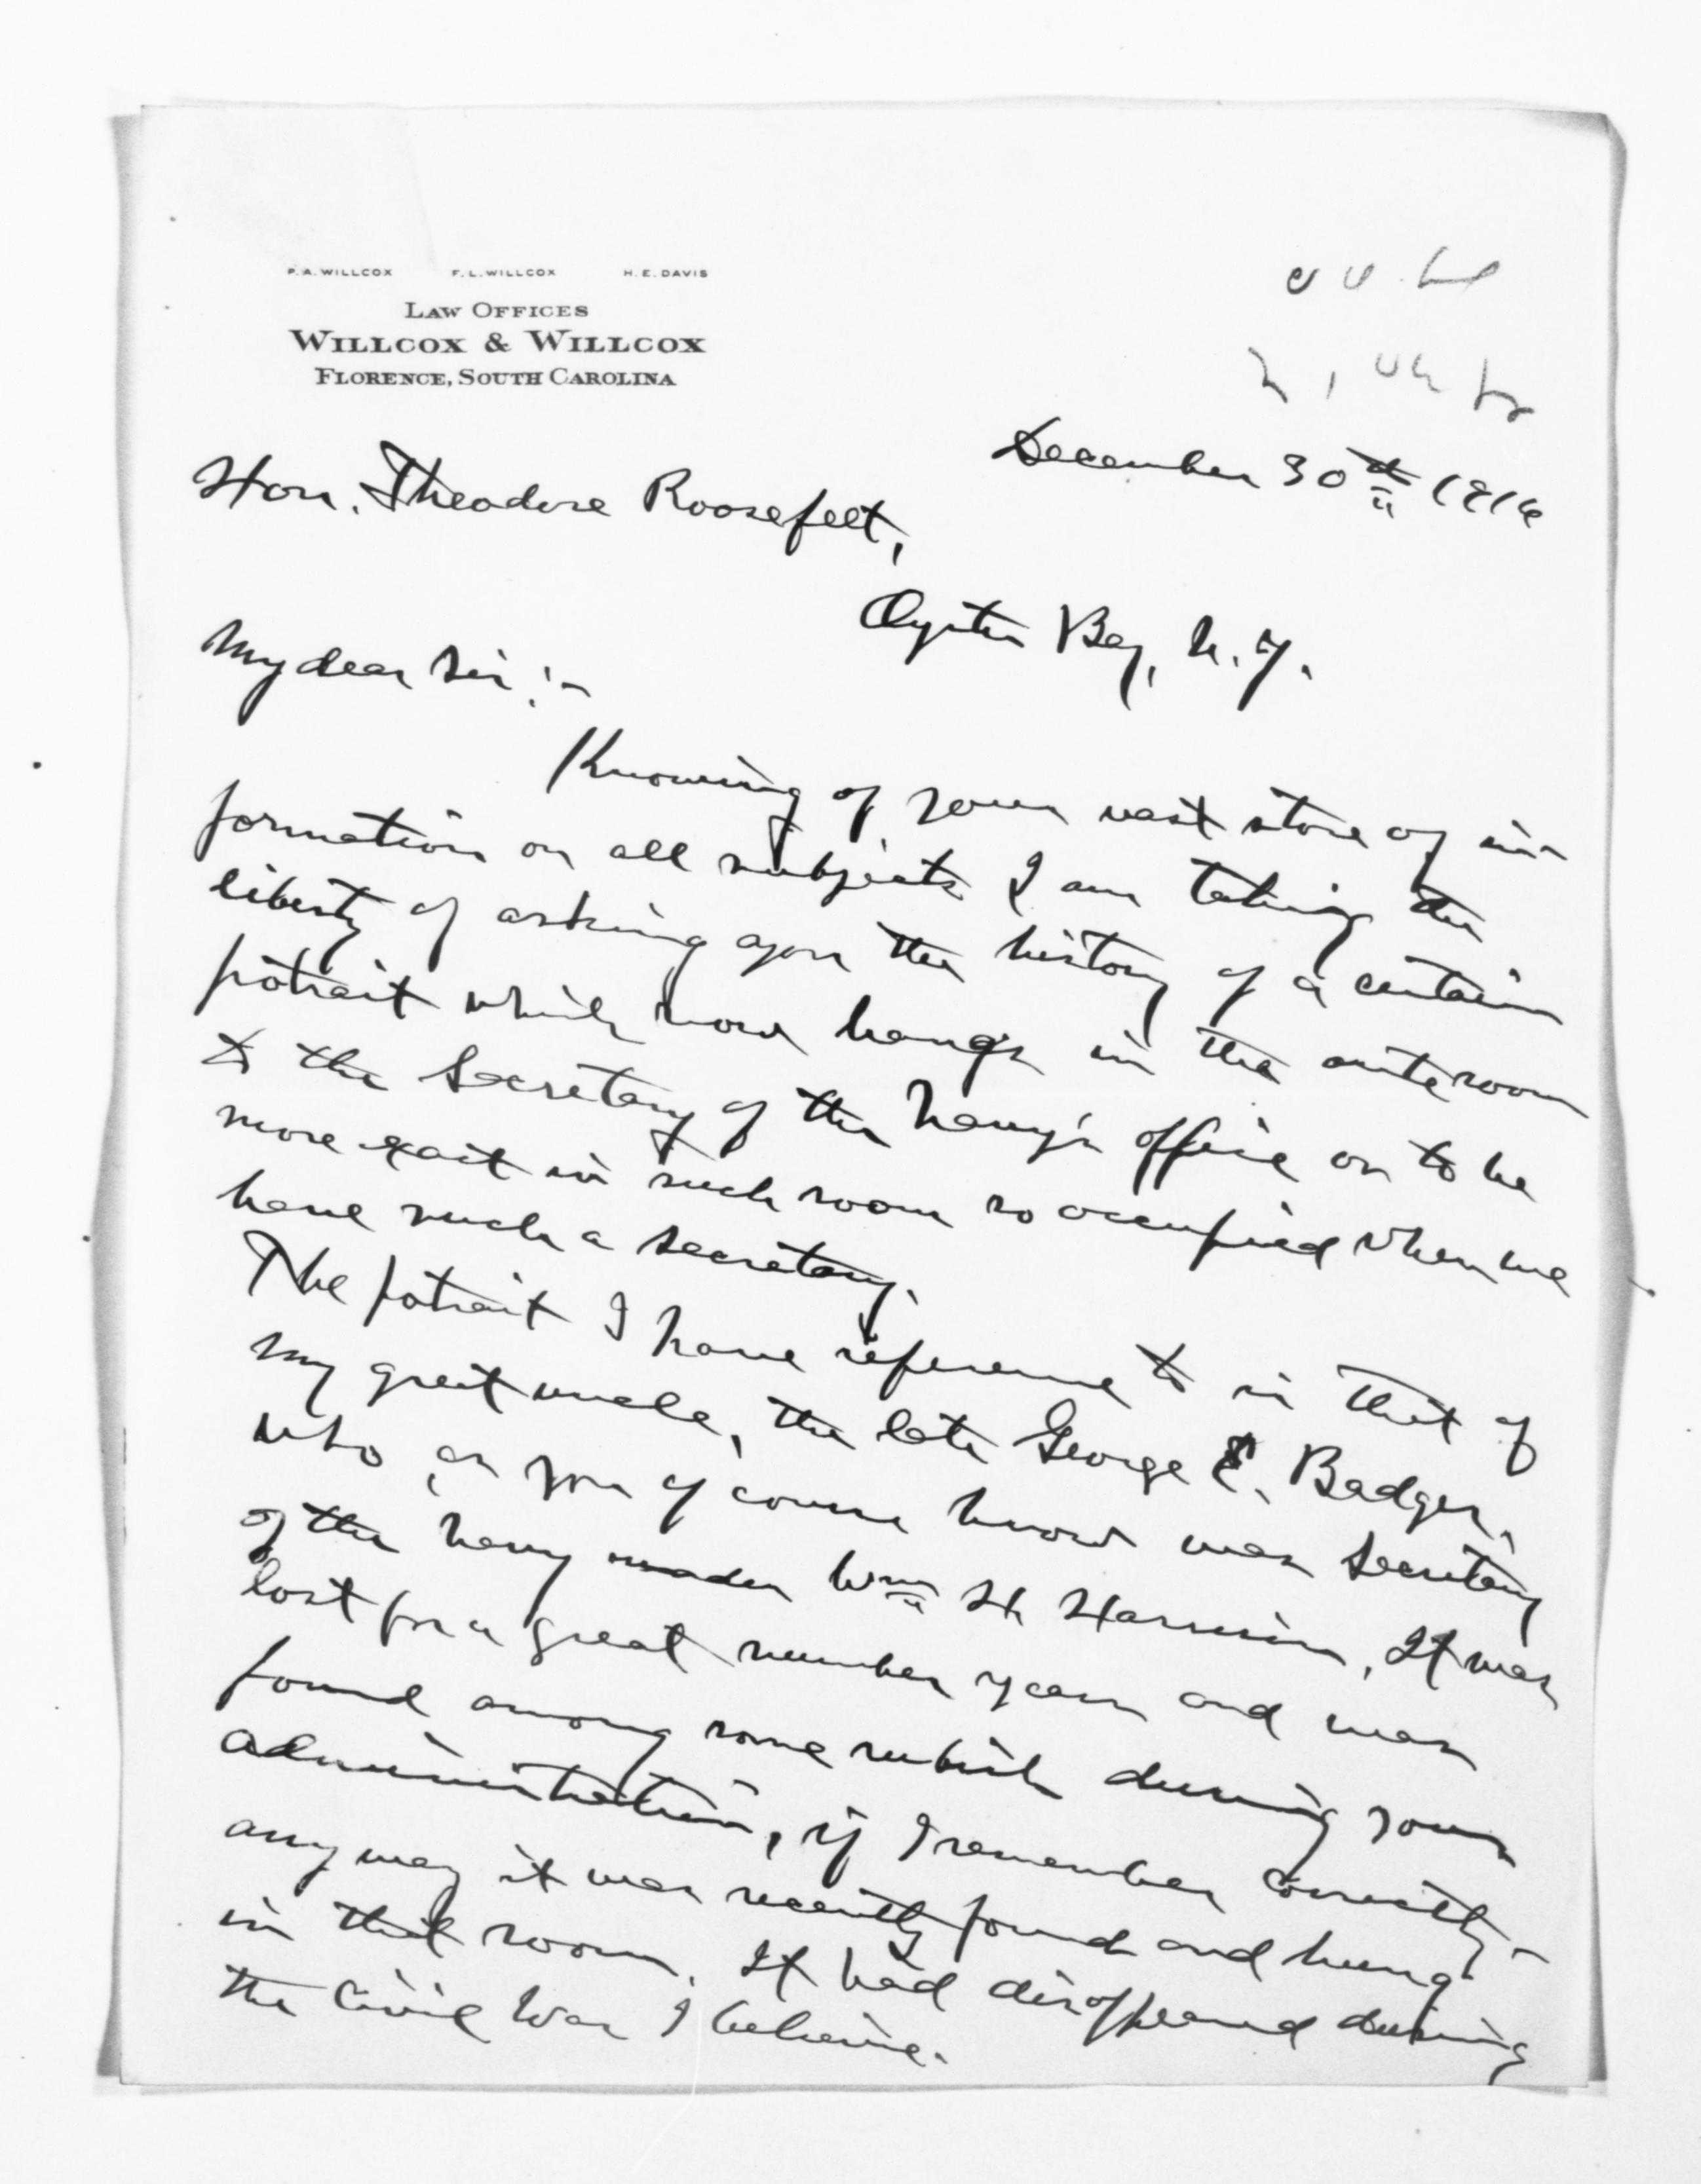 P. A. WILLCOX F. L. WILLCOX H. E. DAVIS
LAW OFFICES
WILLCOX & WILLCOX
FLORENCE, SOUTH CAROLINA
December 30th 1916
Hon. Theodore Roosefelt,
Oyster Bay, N. Y.
My dear Sir:-
Knowing of your vast store of in-
formation on all subjects I am taking the
liberty of asking you the history of a certain
potrait which now hangs in the anteroom
to the Secretary of the Navy's office or to be
more exact in such room so occupied when we
have such a secretary.
The potrait I have reference to is that of
my great uncle, the late George E. Badger,
who, as you of course know was Secretary
of the Navy under Wm H. Harrison. It was
lost for a great number years and was
found among some rubish during your
administration, if I remember correctly-
any way it was recently found and hung
in that room. It had disappeared during
the Civil War I believe.